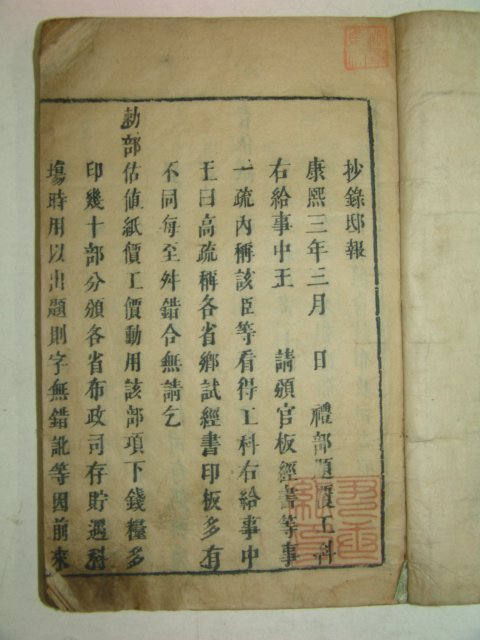 抄錄邸報
康熙三年三月　日　禮部題覆工科
右給事中王　請頒官板經書等事
一疏內稱該臣等看得工科右給事中
王曰高疏稱各省鄉試經書印板多有
不同每至舛錯合無請乞
勅部估值紙價工價動用該部項下錢糧多
印幾十部分頒各省布政司存貯遇科
塲時用以出題則字無錯訛等因前來